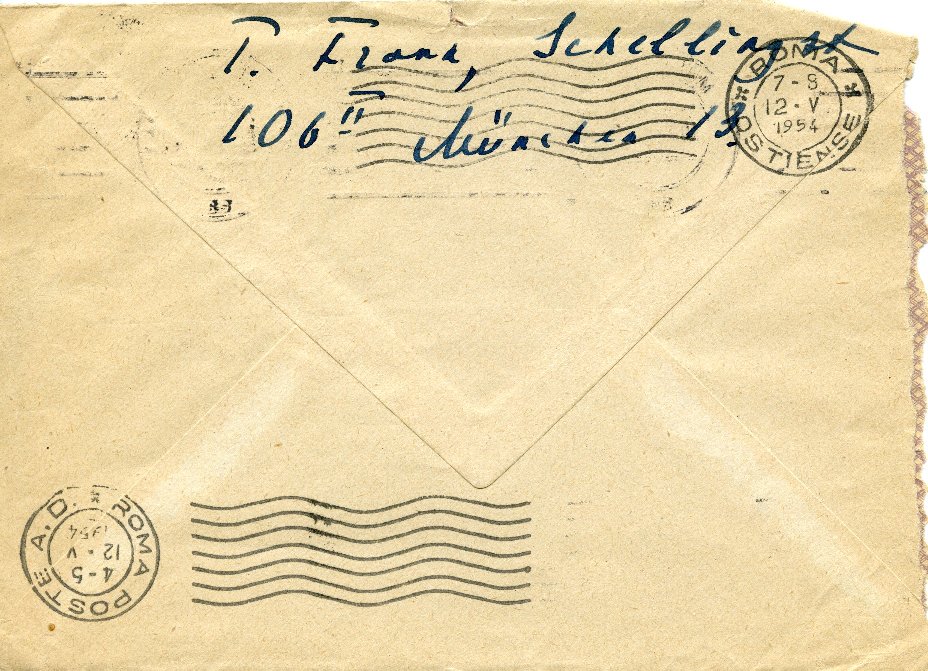 T. Frank, Schellingstr
106 II München 13.
ROMA OSTIENSE
7-8
12·V
1954
ROMA POSTE A.D.
4-5
12·V
1954